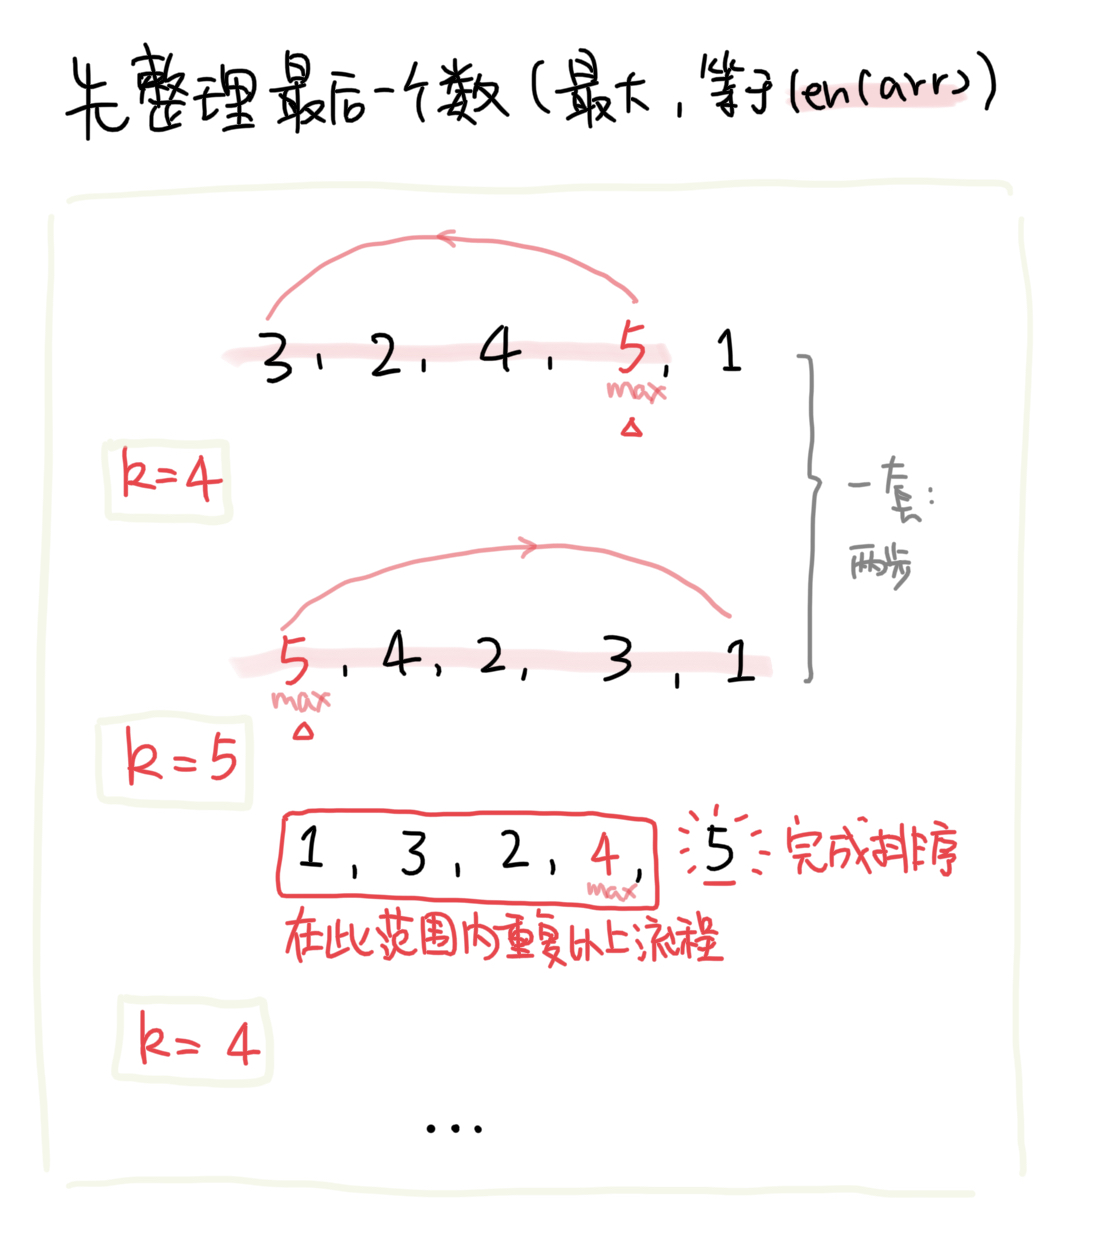 先整理最后一个数(最大,等于len(arr))
3, 2, 4, 5, 1
max
k=4
一套:
两步
5, 4, 2, 3, 1
max
k=5
1, 3, 2, 4, 5 完成排序
max
在此范围内重复以上流程
k=4
...